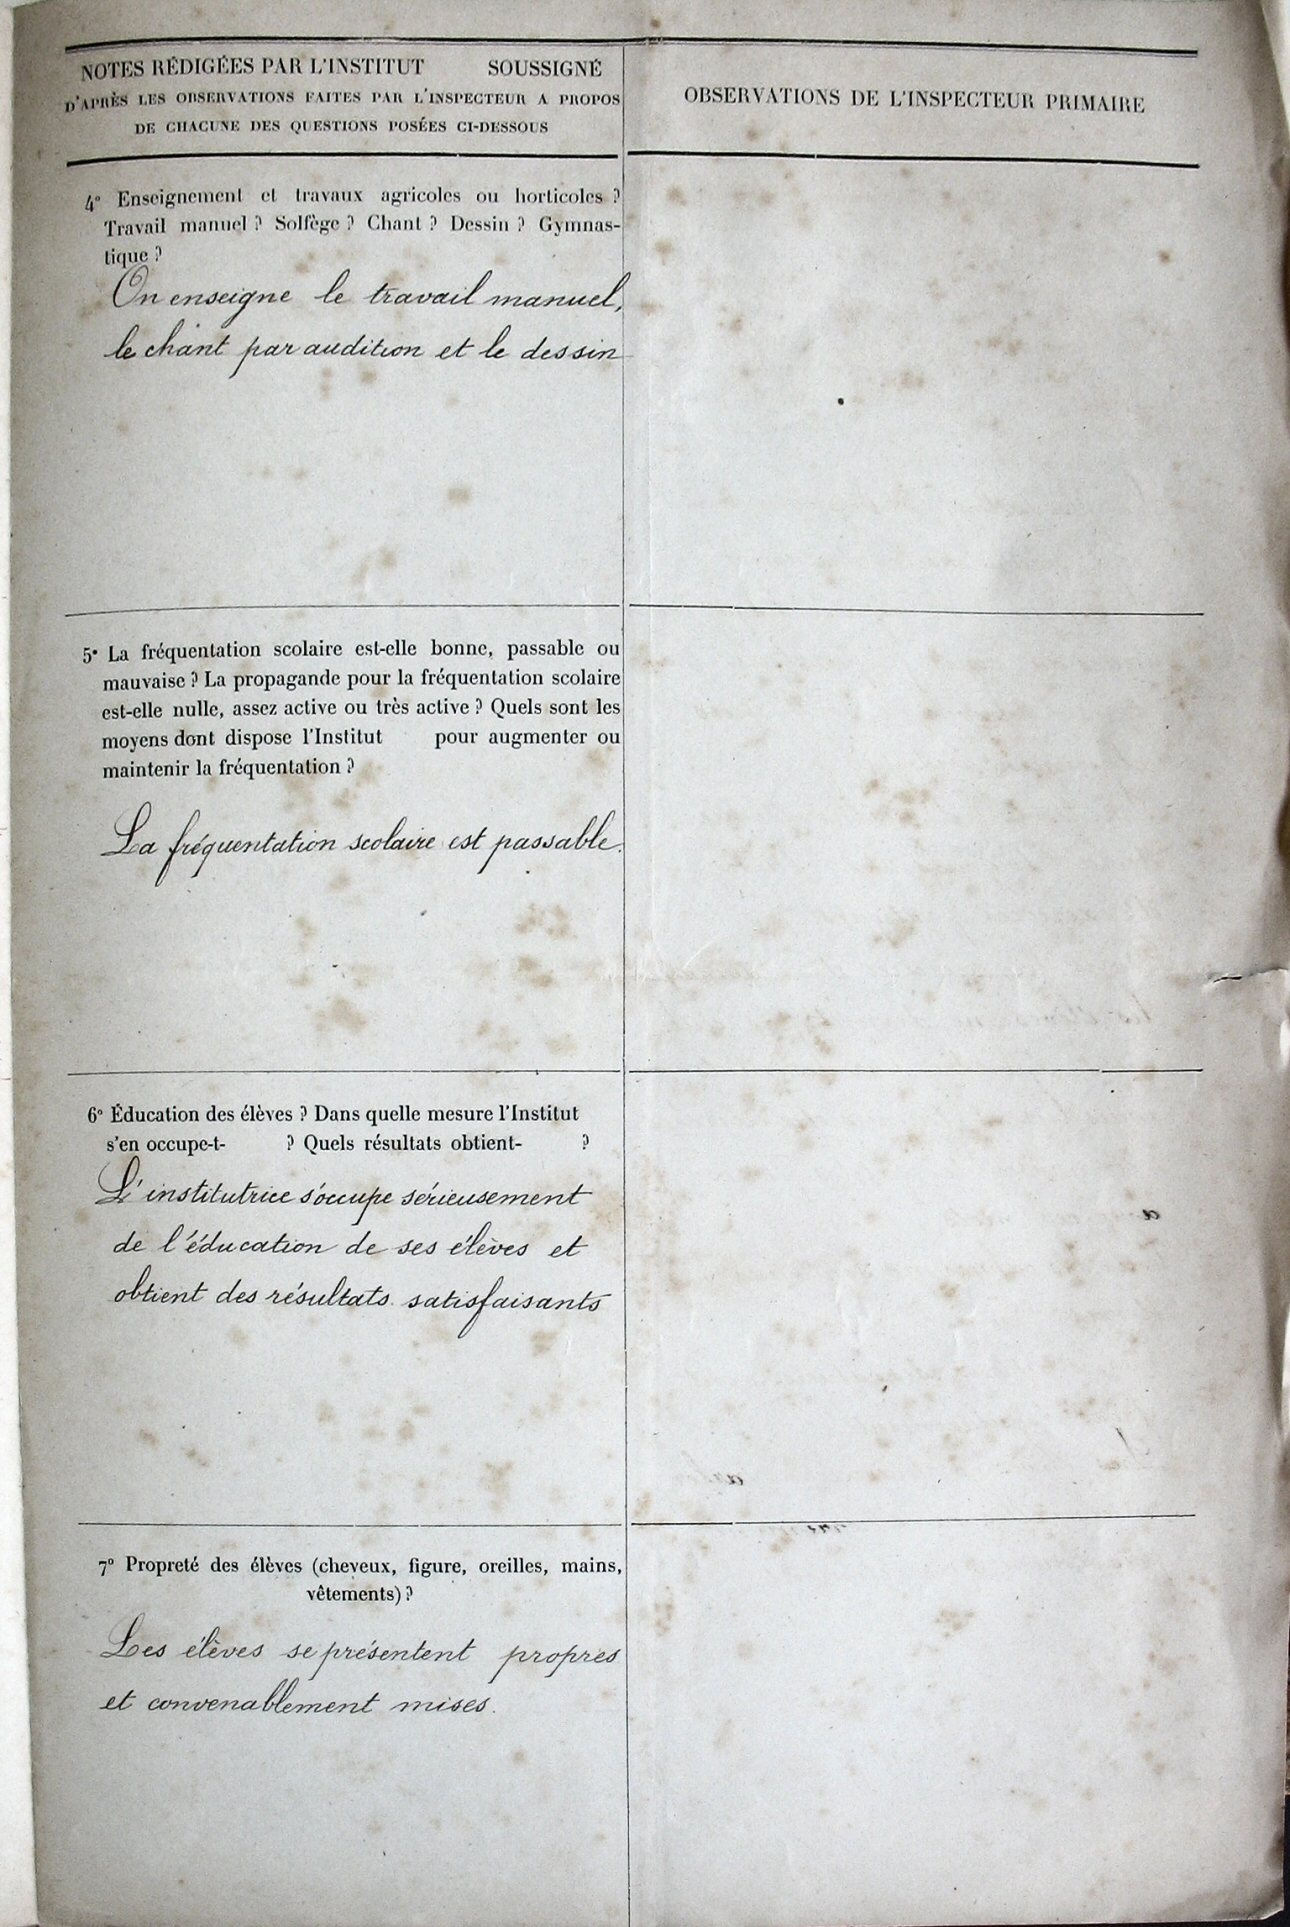 NOTES RÉDIGÉES PAR L'INSTITUT SOUSSIGNÉ
D'APRÈS LES OBSERVATIONS FAITES PAR L'INSPECTEUR A PROPOS
DE CHACUNE DES QUESTIONS POSÉES CI-DESSOUS
OBSERVATIONS DE L'INSPECTEUR PRIMAIRE
4° Enseignement et travaux agricoles ou horticoles ?
Travail manuel ? Solfège ? Chant ? Dessin ? Gymnas-
tique ?
On enseigne le travail manuel,
le chant par audition et le dessin
5° La fréquentation scolaire est-elle bonne, passable ou
mauvaise ? La propagande pour la fréquentation scolaire
est-elle nulle, assez active ou très active ? Quels sont les
moyens dont dispose l'Institut pour augmenter ou
maintenir la fréquentation ?
La fréquentation scolaire est passable.
6° Éducation des élèves ? Dans quelle mesure l'Institut
s'en occupe-t- ? Quels résultats obtient- ?
L'institutrice s'occupe sérieusement
de l'éducation de ses élèves et
obtient des résultats satisfaisants
7° Propreté des élèves (cheveux, figure, oreilles, mains,
vêtements) ?
Les élèves se présentent propres
et convenablement mises.